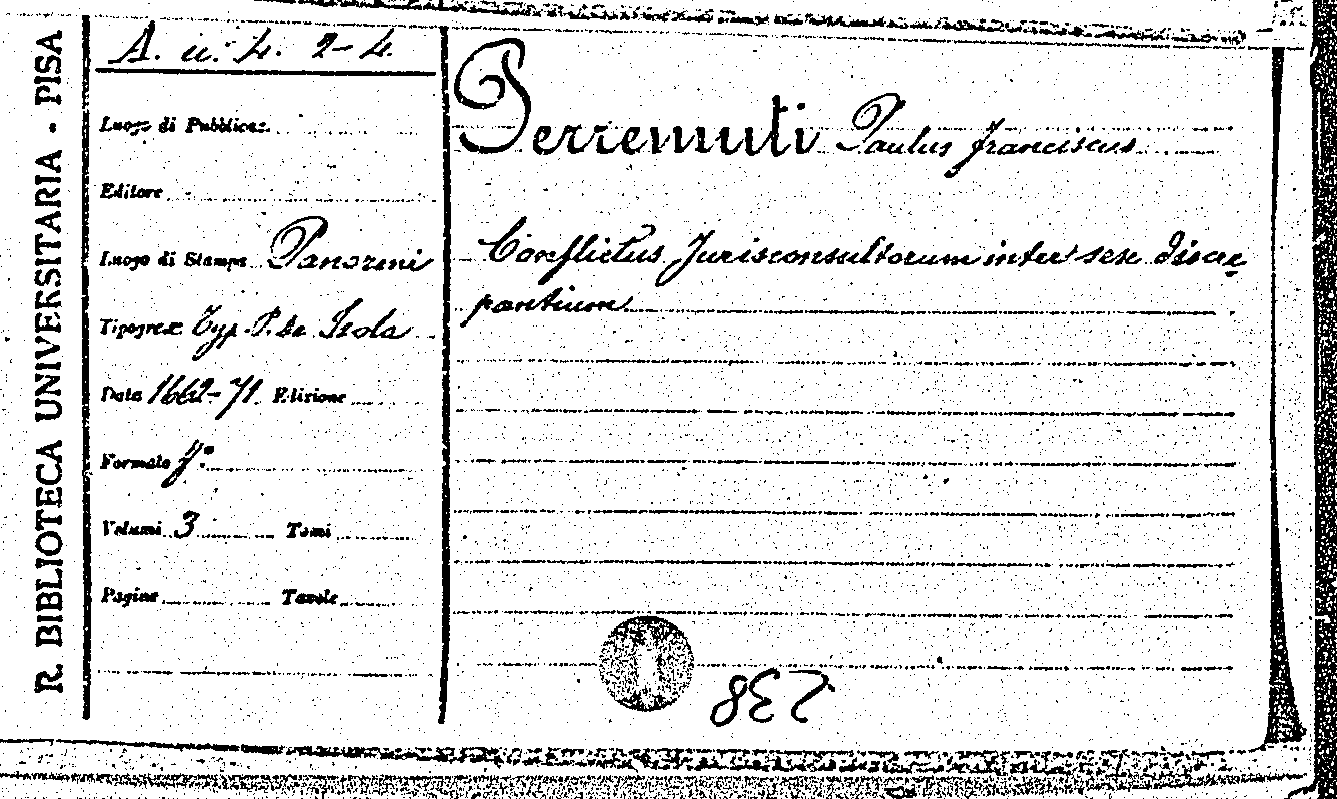 R. BIBLIOTECA UNIVERSITARIA - PISA
A. u. 4. 2-4.
Luogo di Pubblicaz.
Editore
Luogo di Stampa Panormi
Tipografo Typ. P. de Isola
Data 1662-71. Edizione
Formato f.º
Volumi 3 Tomi
Pagine Tavole
Perremuti Paulus Franciscus
Conflictus Jurisconsultorum inter sese discre
pantium
238